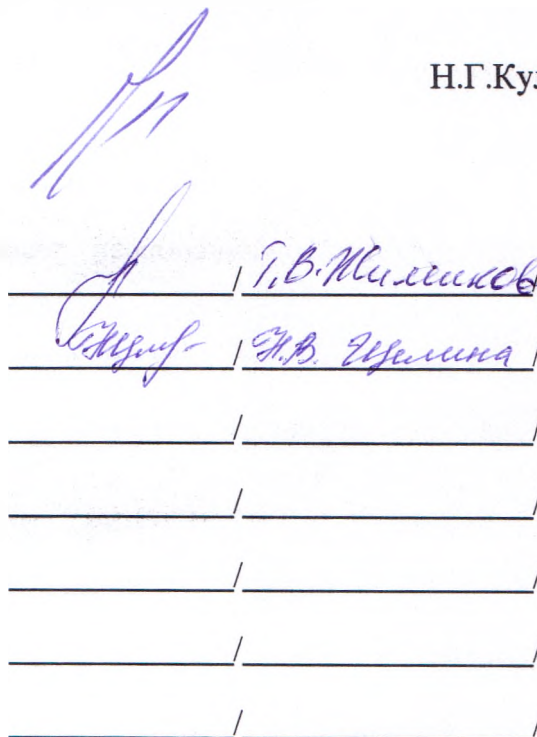 Н.Г.Кул
/ Т.В. Жиликов /
/ Н.В. Щелина /
/ /
/ /
/ /
/ /
/ /